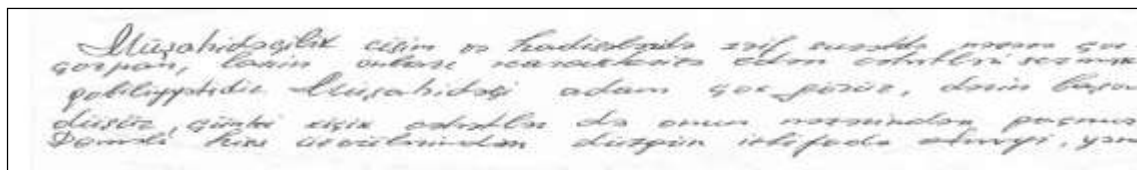 Müşahidəçilik cisim və hadisələrdə zəif surətdə nəzərə çar
çarpan, lakin onları xarakterizə edən cəhətləri sezmək
qabiliyyətidir. Müşahidəçi adam çox görür, dərin başa
düşür, çünki kiçik cəhətlər də onun nəzərindən qaçmır
Deməli hiss üzvlərindən düzgün istifadə etməyi, yən